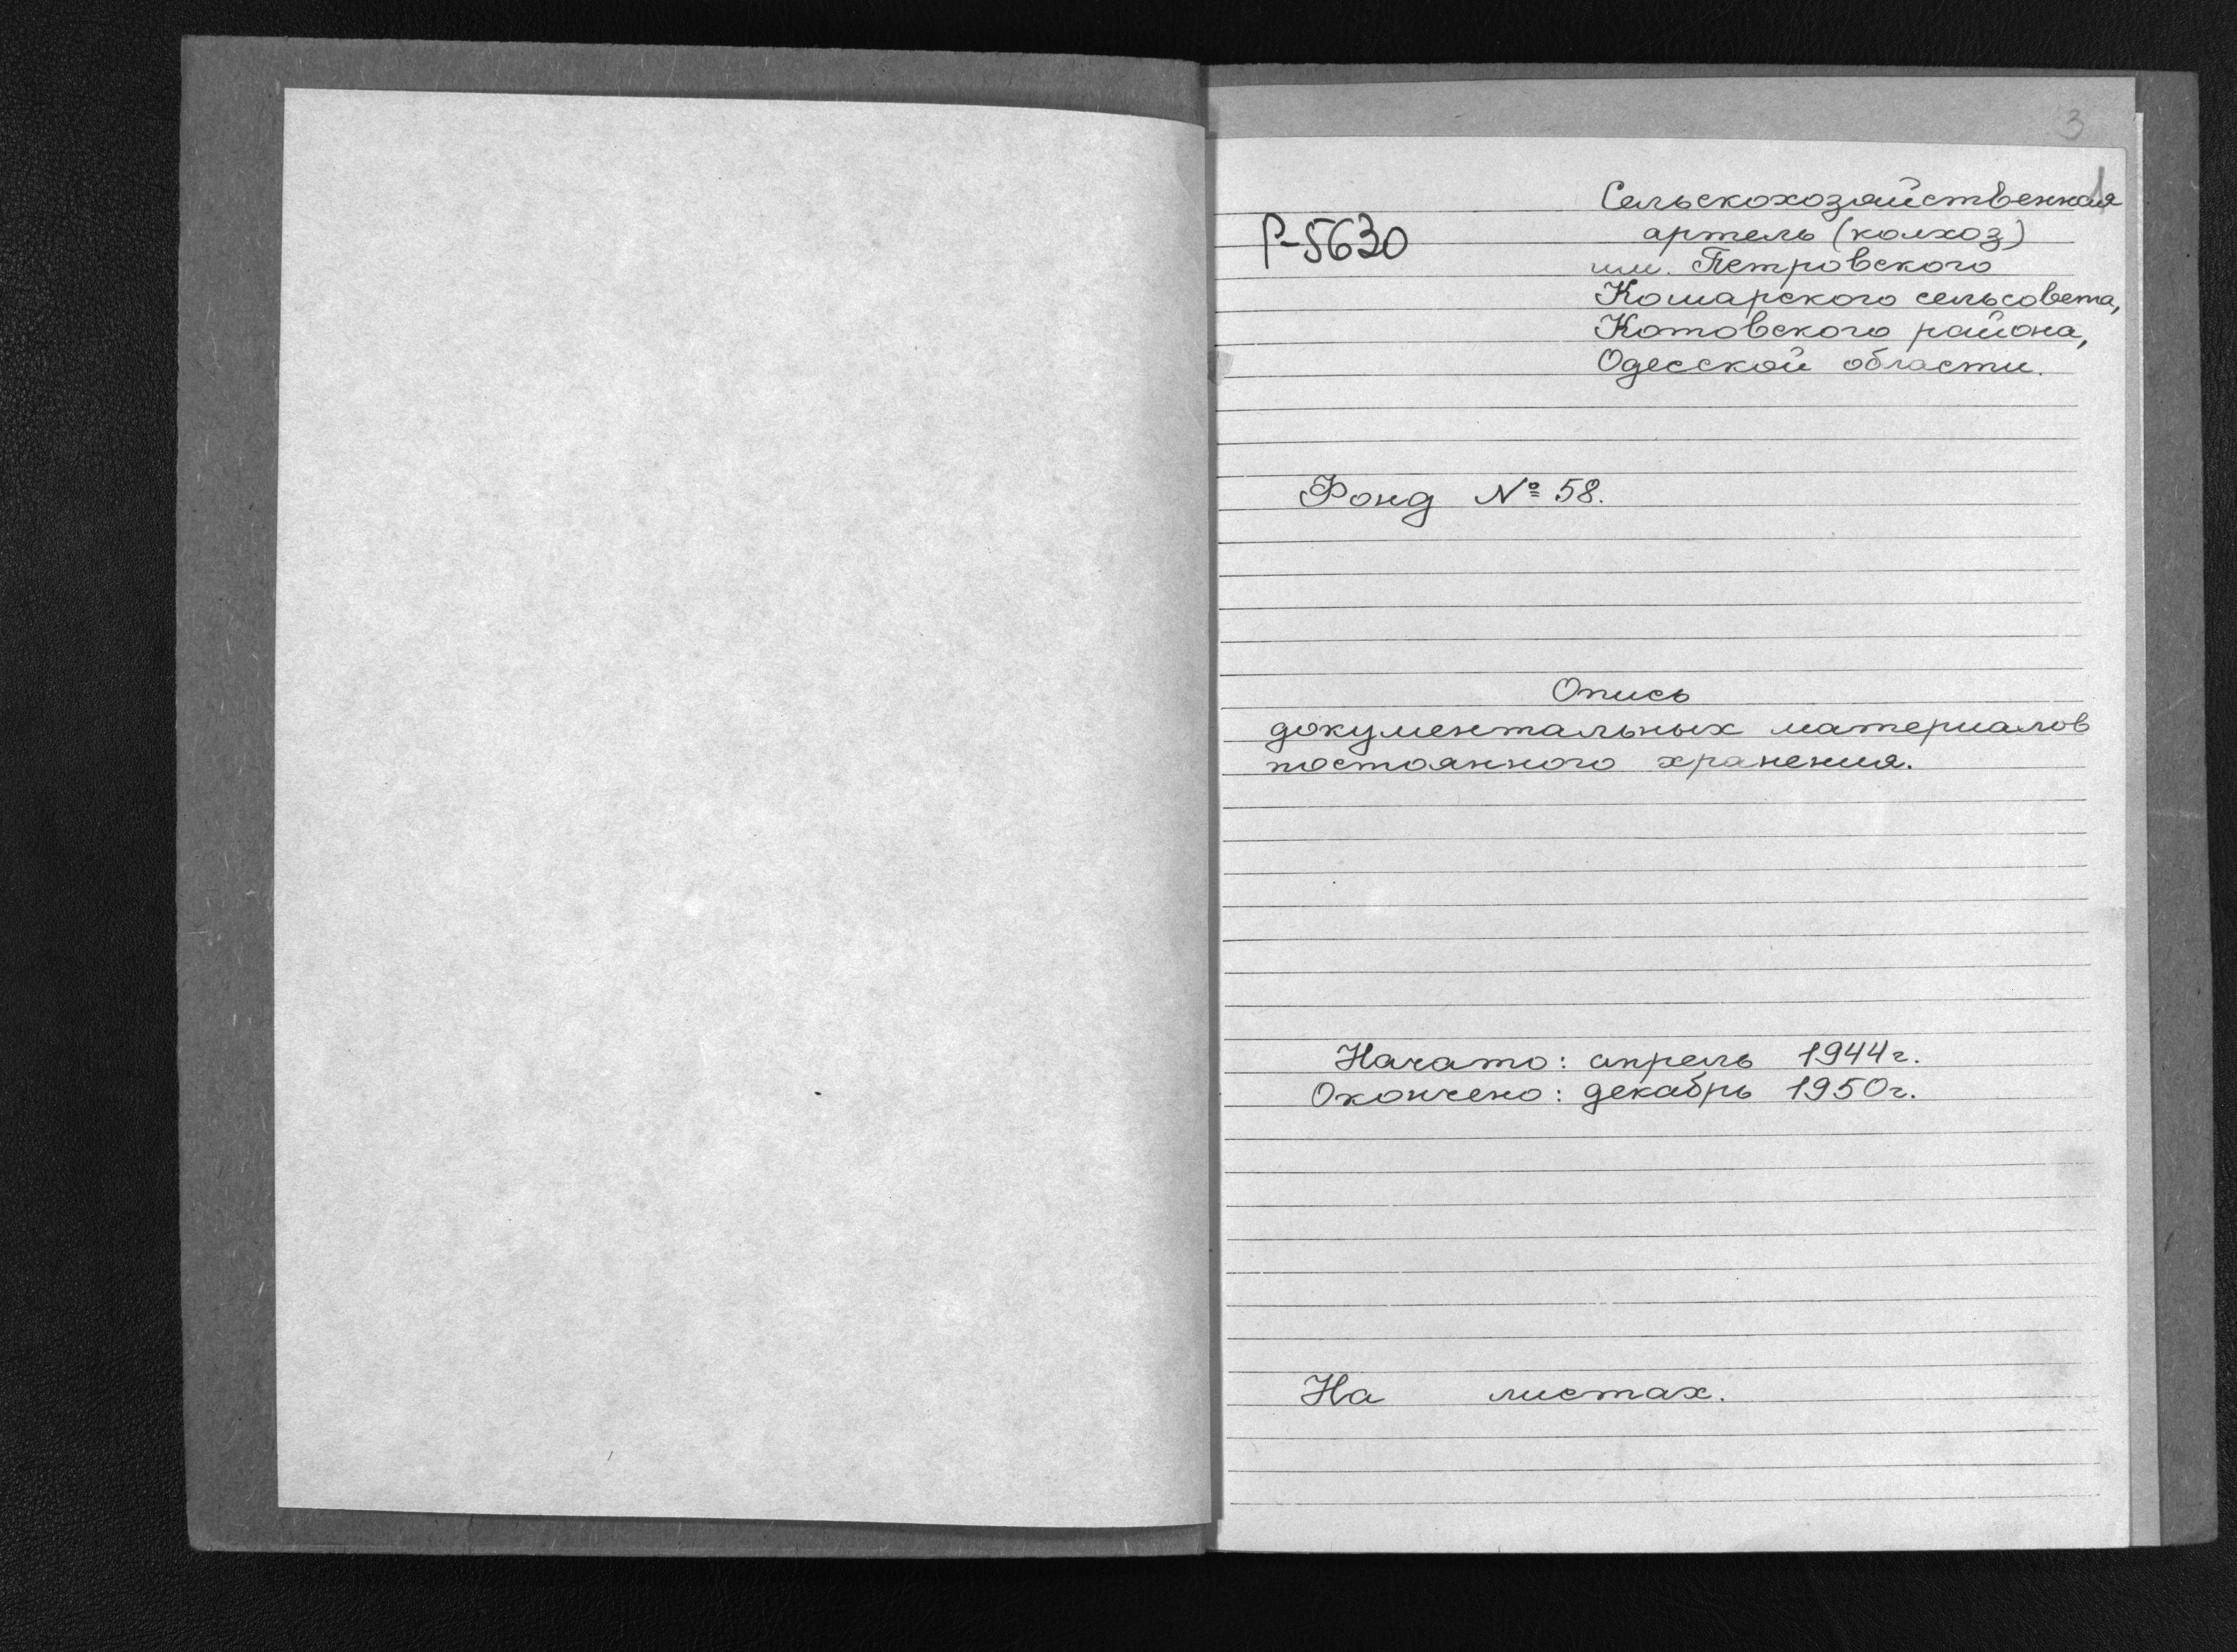 3
1
Сельскохозяйственная
Р-5630
артель (колхоз)
им. Петровского
Комарского сельсовета,
Котовского района,
Одесской области.
Фонд № 58.
Опись
документальных материалов
постоянного хранения.
Начато: апрель 1944г.
Окончено: декабрь 1950г.
На листах.